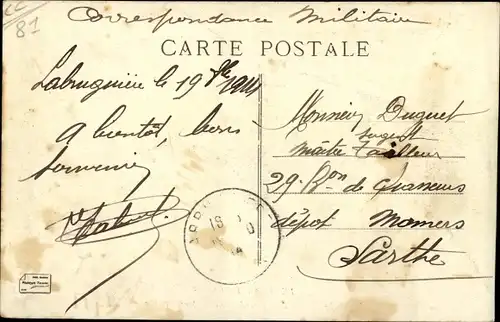 Correspondance Militaire
81
CARTE POSTALE
Labruguière le 19 8bre 1914
A bientôt, bons
souvenirs
Monsieur Duguet
sergent
maître tailleur
29e Bon de Chasseurs
dépôt Mamers
Sarthe